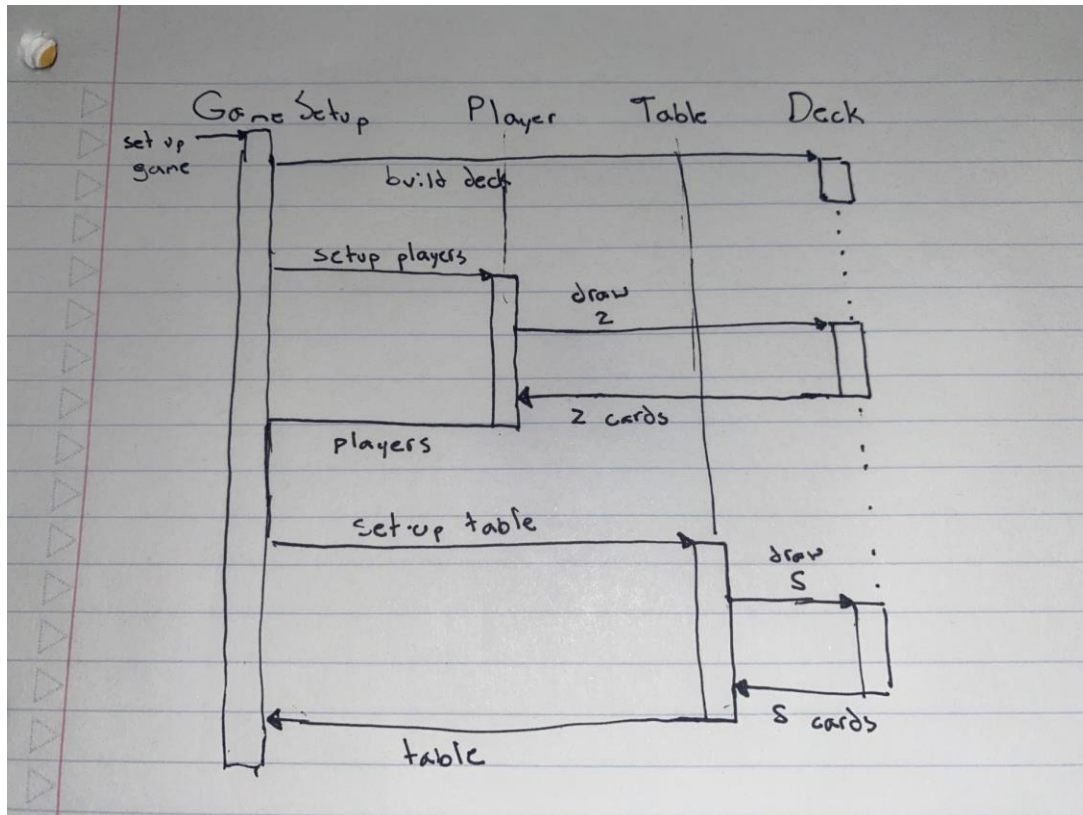 Game Setup Player Table Deck
set up
game
build deck
setup players
draw
2
2 cards
players
set-up table
draw
5
5 cards
table